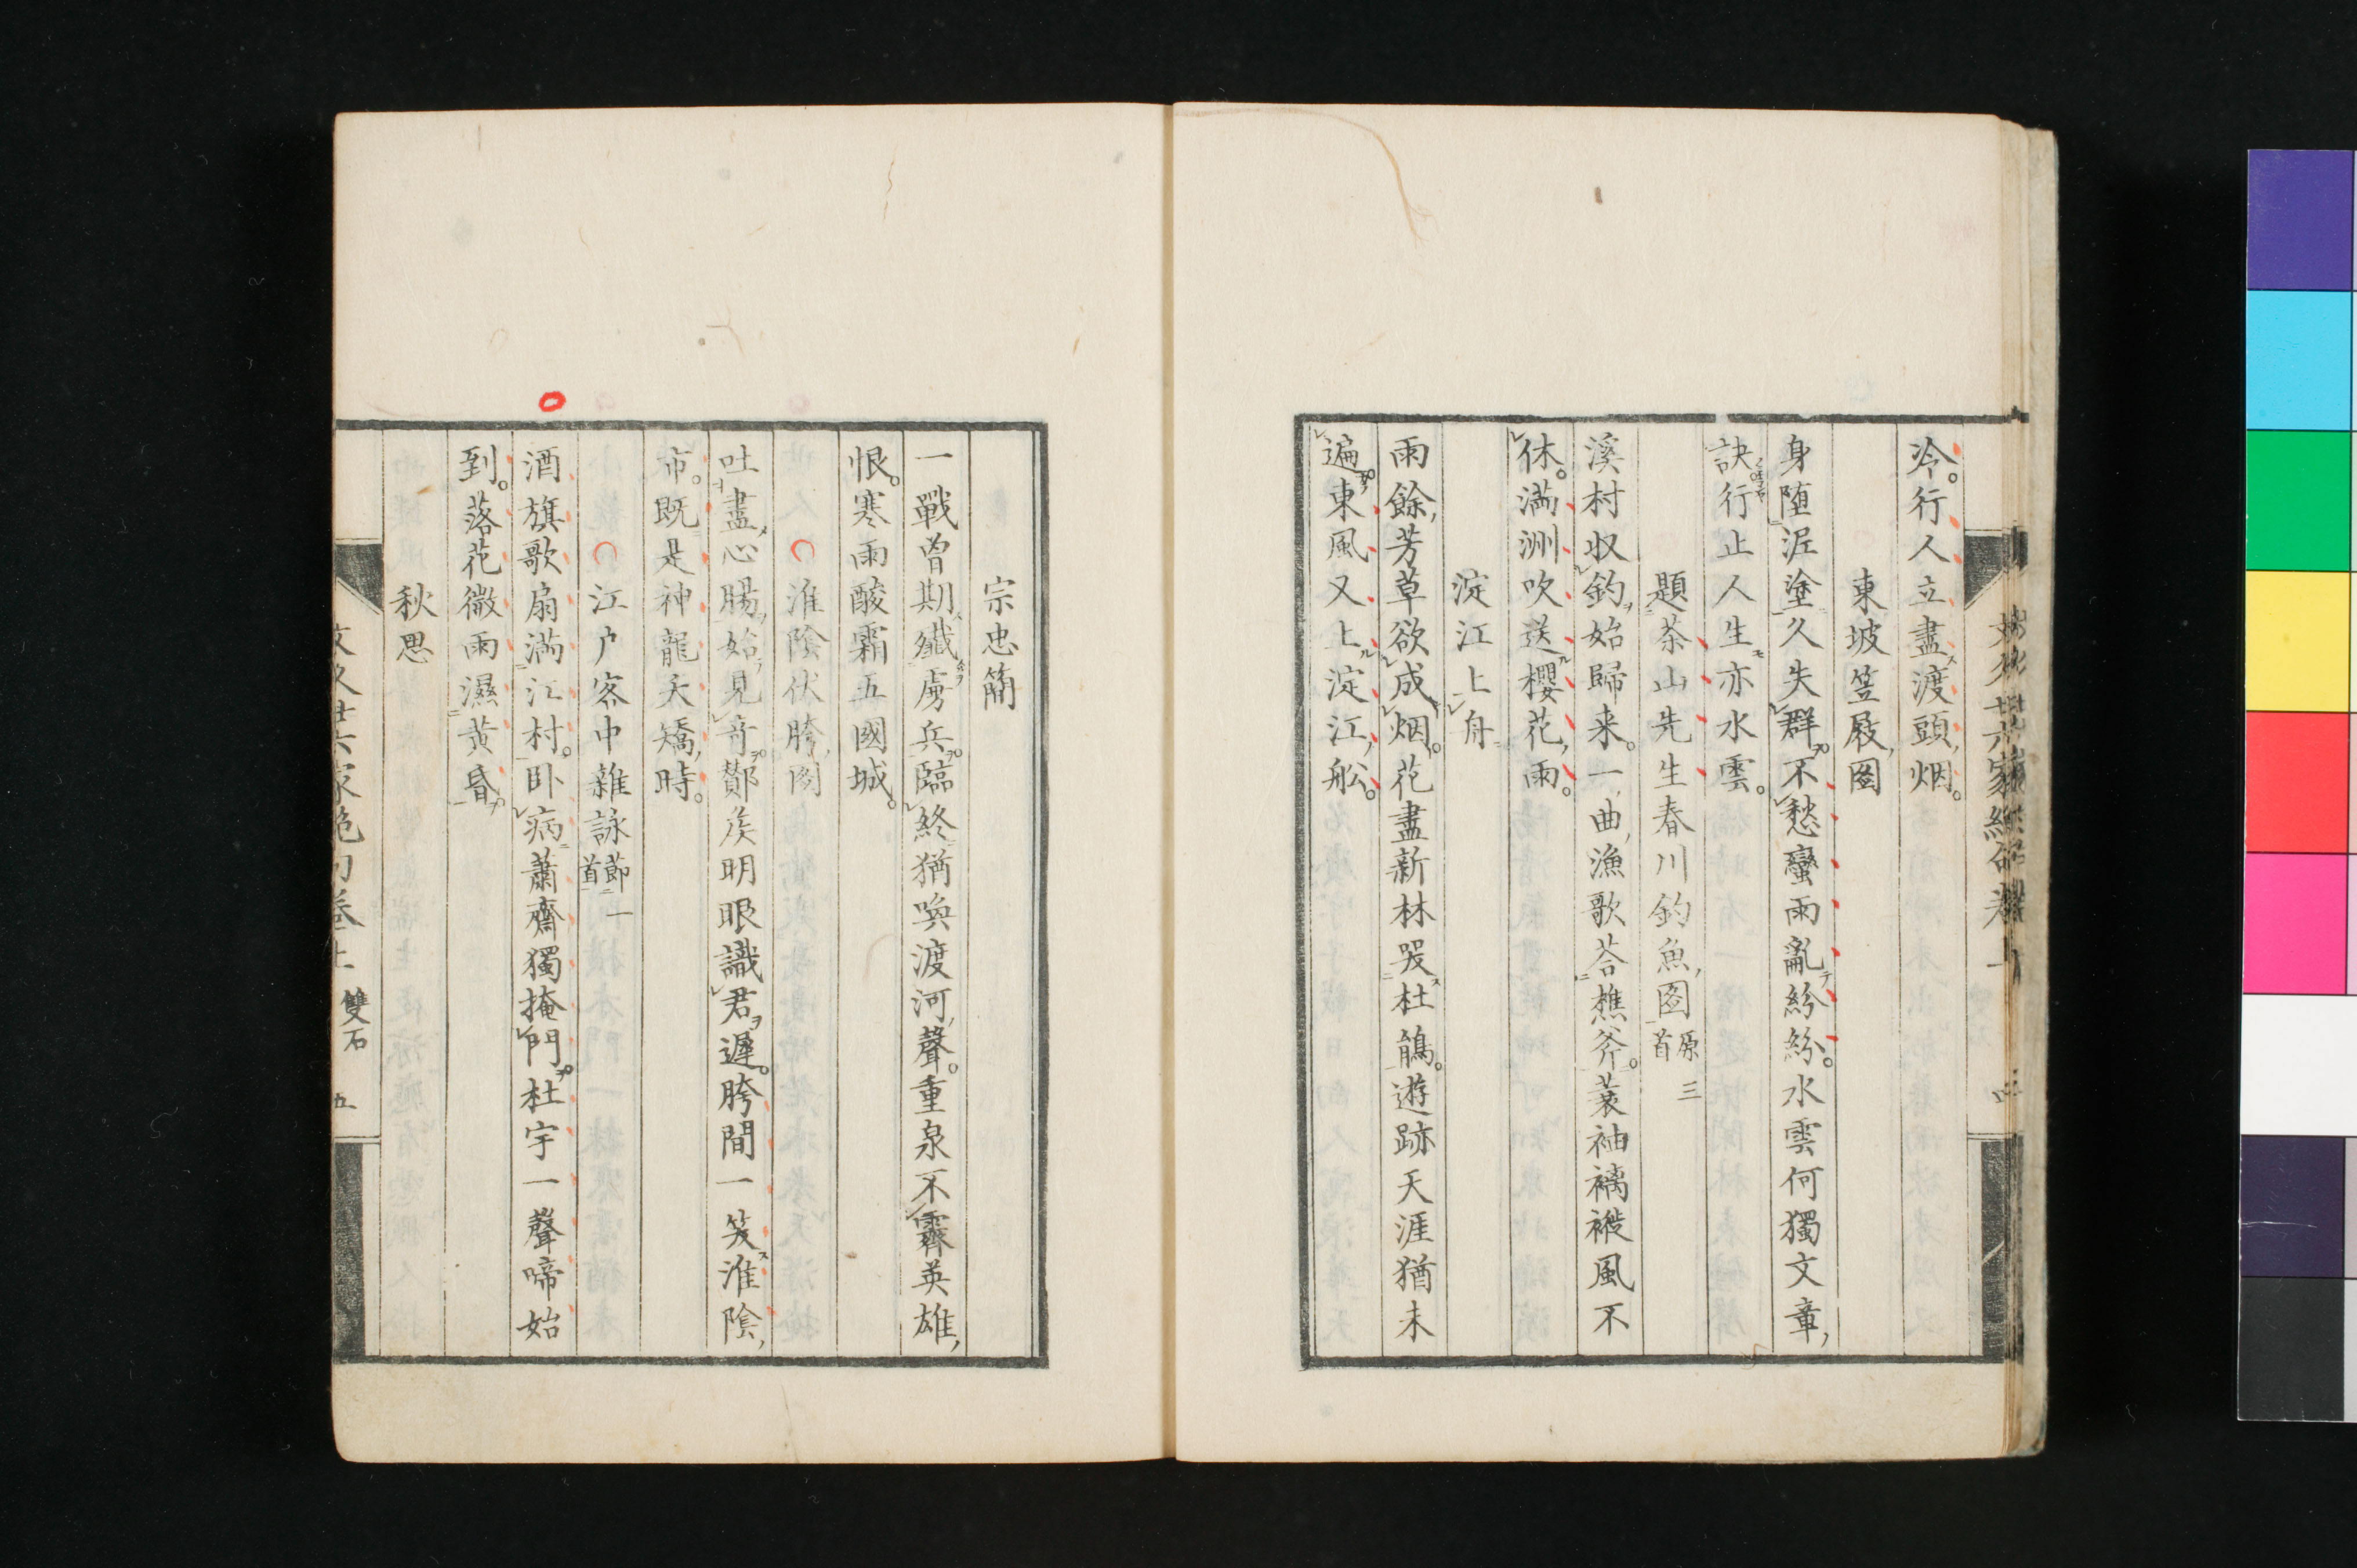 冷。行人立盡渡頭烟。
東坡笠屐圖
身墮泥塗久失群。不愁蠻雨亂紛紛。水雲何獨文章
訣。行止人生亦水雲。
題茶山先生春川釣魚圖原三首
溪村収釣始歸来。一曲漁歌荅樵斧。蓑袖褵褷風不
休。満洲吹送櫻花雨。
淀江上舟
雨餘芳草欲成烟。花盡新林哭杜鵑。遊跡天涯猶未
遍。東風又上淀江舩。
宗忠簡
一戰曽期殱虜兵。臨終猶喚渡河聲。重泉不霽英雄
恨。寒雨酸霜五國城。
淮陰伏胯圖
吐盡心腸始見奇。酇矦明眼識君遲。胯間一笑淮陰
市。既是神龍夭矯時。
江戸客中雜詠節一首
酒旗歌扇満江村。卧病蕭齋獨掩門。杜宇一聲啼始
到。落花微雨濕黄昏。
秋思
文久廿六家絶句卷上 雙石 五